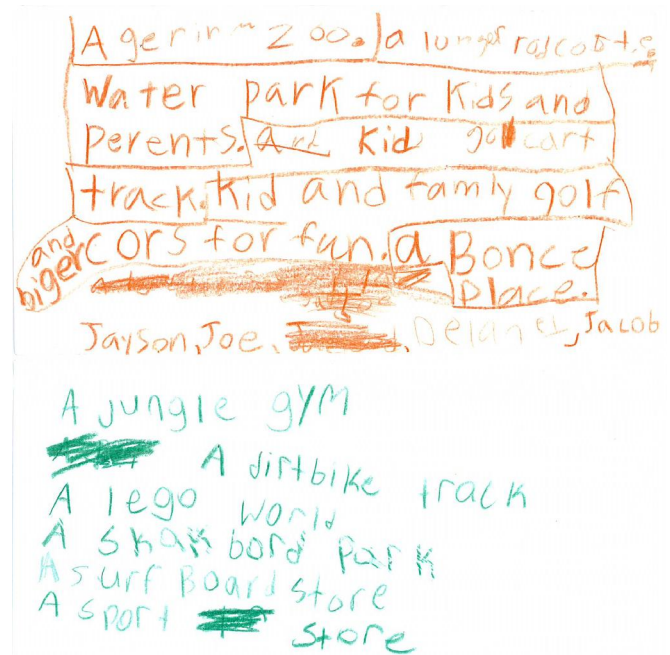 A gerin zoo. a lunger rascotts.
Water park for kids and
perents. Art kid go cart
track. Kid and famly golf
and biger cors for fun. a Bonce
place.
Jayson, Joe, Delanet, Jacob
A jungle gym
A dirtbike track
A lego world
A skakbord park
A surf Board store
A sport store